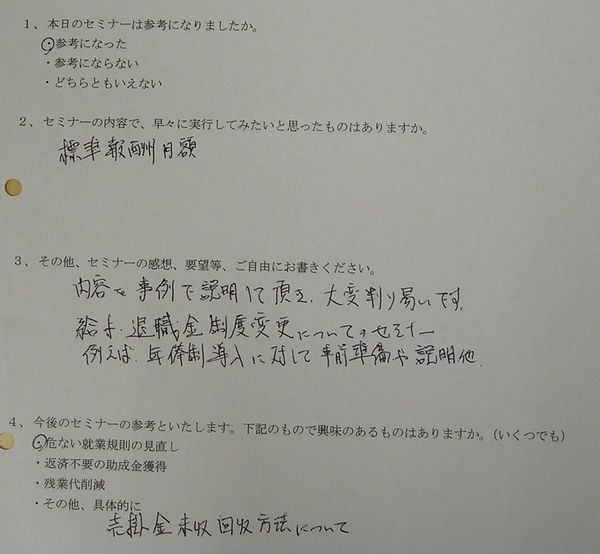 1、本日のセミナーは参考になりましたか。
・参考になった
・参考にならない
・どちらともいえない
2、セミナーの内容で、早々に実行してみたいと思ったものはありますか。
標準報酬月額
3、その他、セミナーの感想、要望等、ご自由にお書きください。
内容を事例で説明して頂き、大変判り易いです。
給与、退職金制度変更についてのセミナー
例えば、年俸制導入に対して事前準備や説明他
4、今後のセミナーの参考といたします。下記のもので興味のあるものはありますか。(いくつでも)
・危ない就業規則の見直し
・返済不要の助成金獲得
・残業代削減
・その他、具体的に
売掛金未収回収方法について